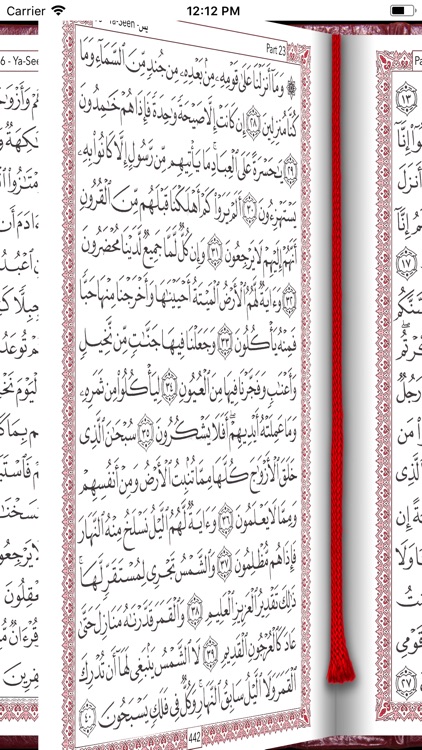 Carrier 12:12 PM
Ya-Seen -يس Part 23
۞ وَمَآ أَنزَلْنَا عَلَىٰ قَوْمِهِۦ مِنۢ بَعْدِهِۦ مِن جُندٍ مِّنَ ٱلسَّمَآءِ وَمَا
كُنَّا مُنزِلِينَ ٢٨ إِن كَانَتْ إِلَّا صَيْحَةً وَٰحِدَةً فَإِذَا هُمْ خَٰمِدُونَ
٢٩ يَٰحَسْرَةً عَلَى ٱلْعِبَادِ ۚ مَا يَأْتِيهِم مِّن رَّسُولٍ إِلَّا كَانُوا۟ بِهِۦ
يَسْتَهْزِءُونَ ٣٠ أَلَمْ يَرَوْا۟ كَمْ أَهْلَكْنَا قَبْلَهُم مِّنَ ٱلْقُرُونِ
أَنَّهُمْ إِلَيْهِمْ لَا يَرْجِعُونَ ٣١ وَإِن كُلٌّ لَّمَّا جَمِيعٌ لَّدَيْنَا مُحْضَرُونَ
٣٢ وَءَايَةٌ لَّهُمُ ٱلْأَرْضُ ٱلْمَيْتَةُ أَحْيَيْنَٰهَا وَأَخْرَجْنَا مِنْهَا حَبًّا
فَمِنْهُ يَأْكُلُونَ ٣٣ وَجَعَلْنَا فِيهَا جَنَّٰتٍ مِّن نَّخِيلٍ
وَأَعْنَٰبٍ وَفَجَّرْنَا فِيهَا مِنَ ٱلْعُيُونِ ٣٤ لِيَأْكُلُوا۟ مِن ثَمَرِهِۦ
وَمَا عَمِلَتْهُ أَيْدِيهِمْ ۖ أَفَلَا يَشْكُرُونَ ٣٥ سُبْحَٰنَ ٱلَّذِى
خَلَقَ ٱلْأَزْوَٰجَ كُلَّهَا مِمَّا تُنۢبِتُ ٱلْأَرْضُ وَمِنْ أَنفُسِهِمْ
وَمِمَّا لَا يَعْلَمُونَ ٣٦ وَءَايَةٌ لَّهُمُ ٱلَّيْلُ نَسْلَخُ مِنْهُ ٱلنَّهَارَ
فَإِذَا هُم مُّظْلِمُونَ ٣٧ وَٱلشَّمْسُ تَجْرِى لِمُسْتَقَرٍّ لَّهَا ۚ
ذَٰلِكَ تَقْدِيرُ ٱلْعَزِيزِ ٱلْعَلِيمِ ٣٨ وَٱلْقَمَرَ قَدَّرْنَٰهُ مَنَازِلَ حَتَّىٰ
عَادَ كَٱلْعُرْجُونِ ٱلْقَدِيمِ ٣٩ لَا ٱلشَّمْسُ يَنۢبَغِى لَهَآ أَن تُدْرِكَ
ٱلْقَمَرَ وَلَا ٱلَّيْلُ سَابِقُ ٱلنَّهَارِ ۚ وَكُلٌّ فِى فَلَكٍ يَسْبَحُونَ ٤٠
442